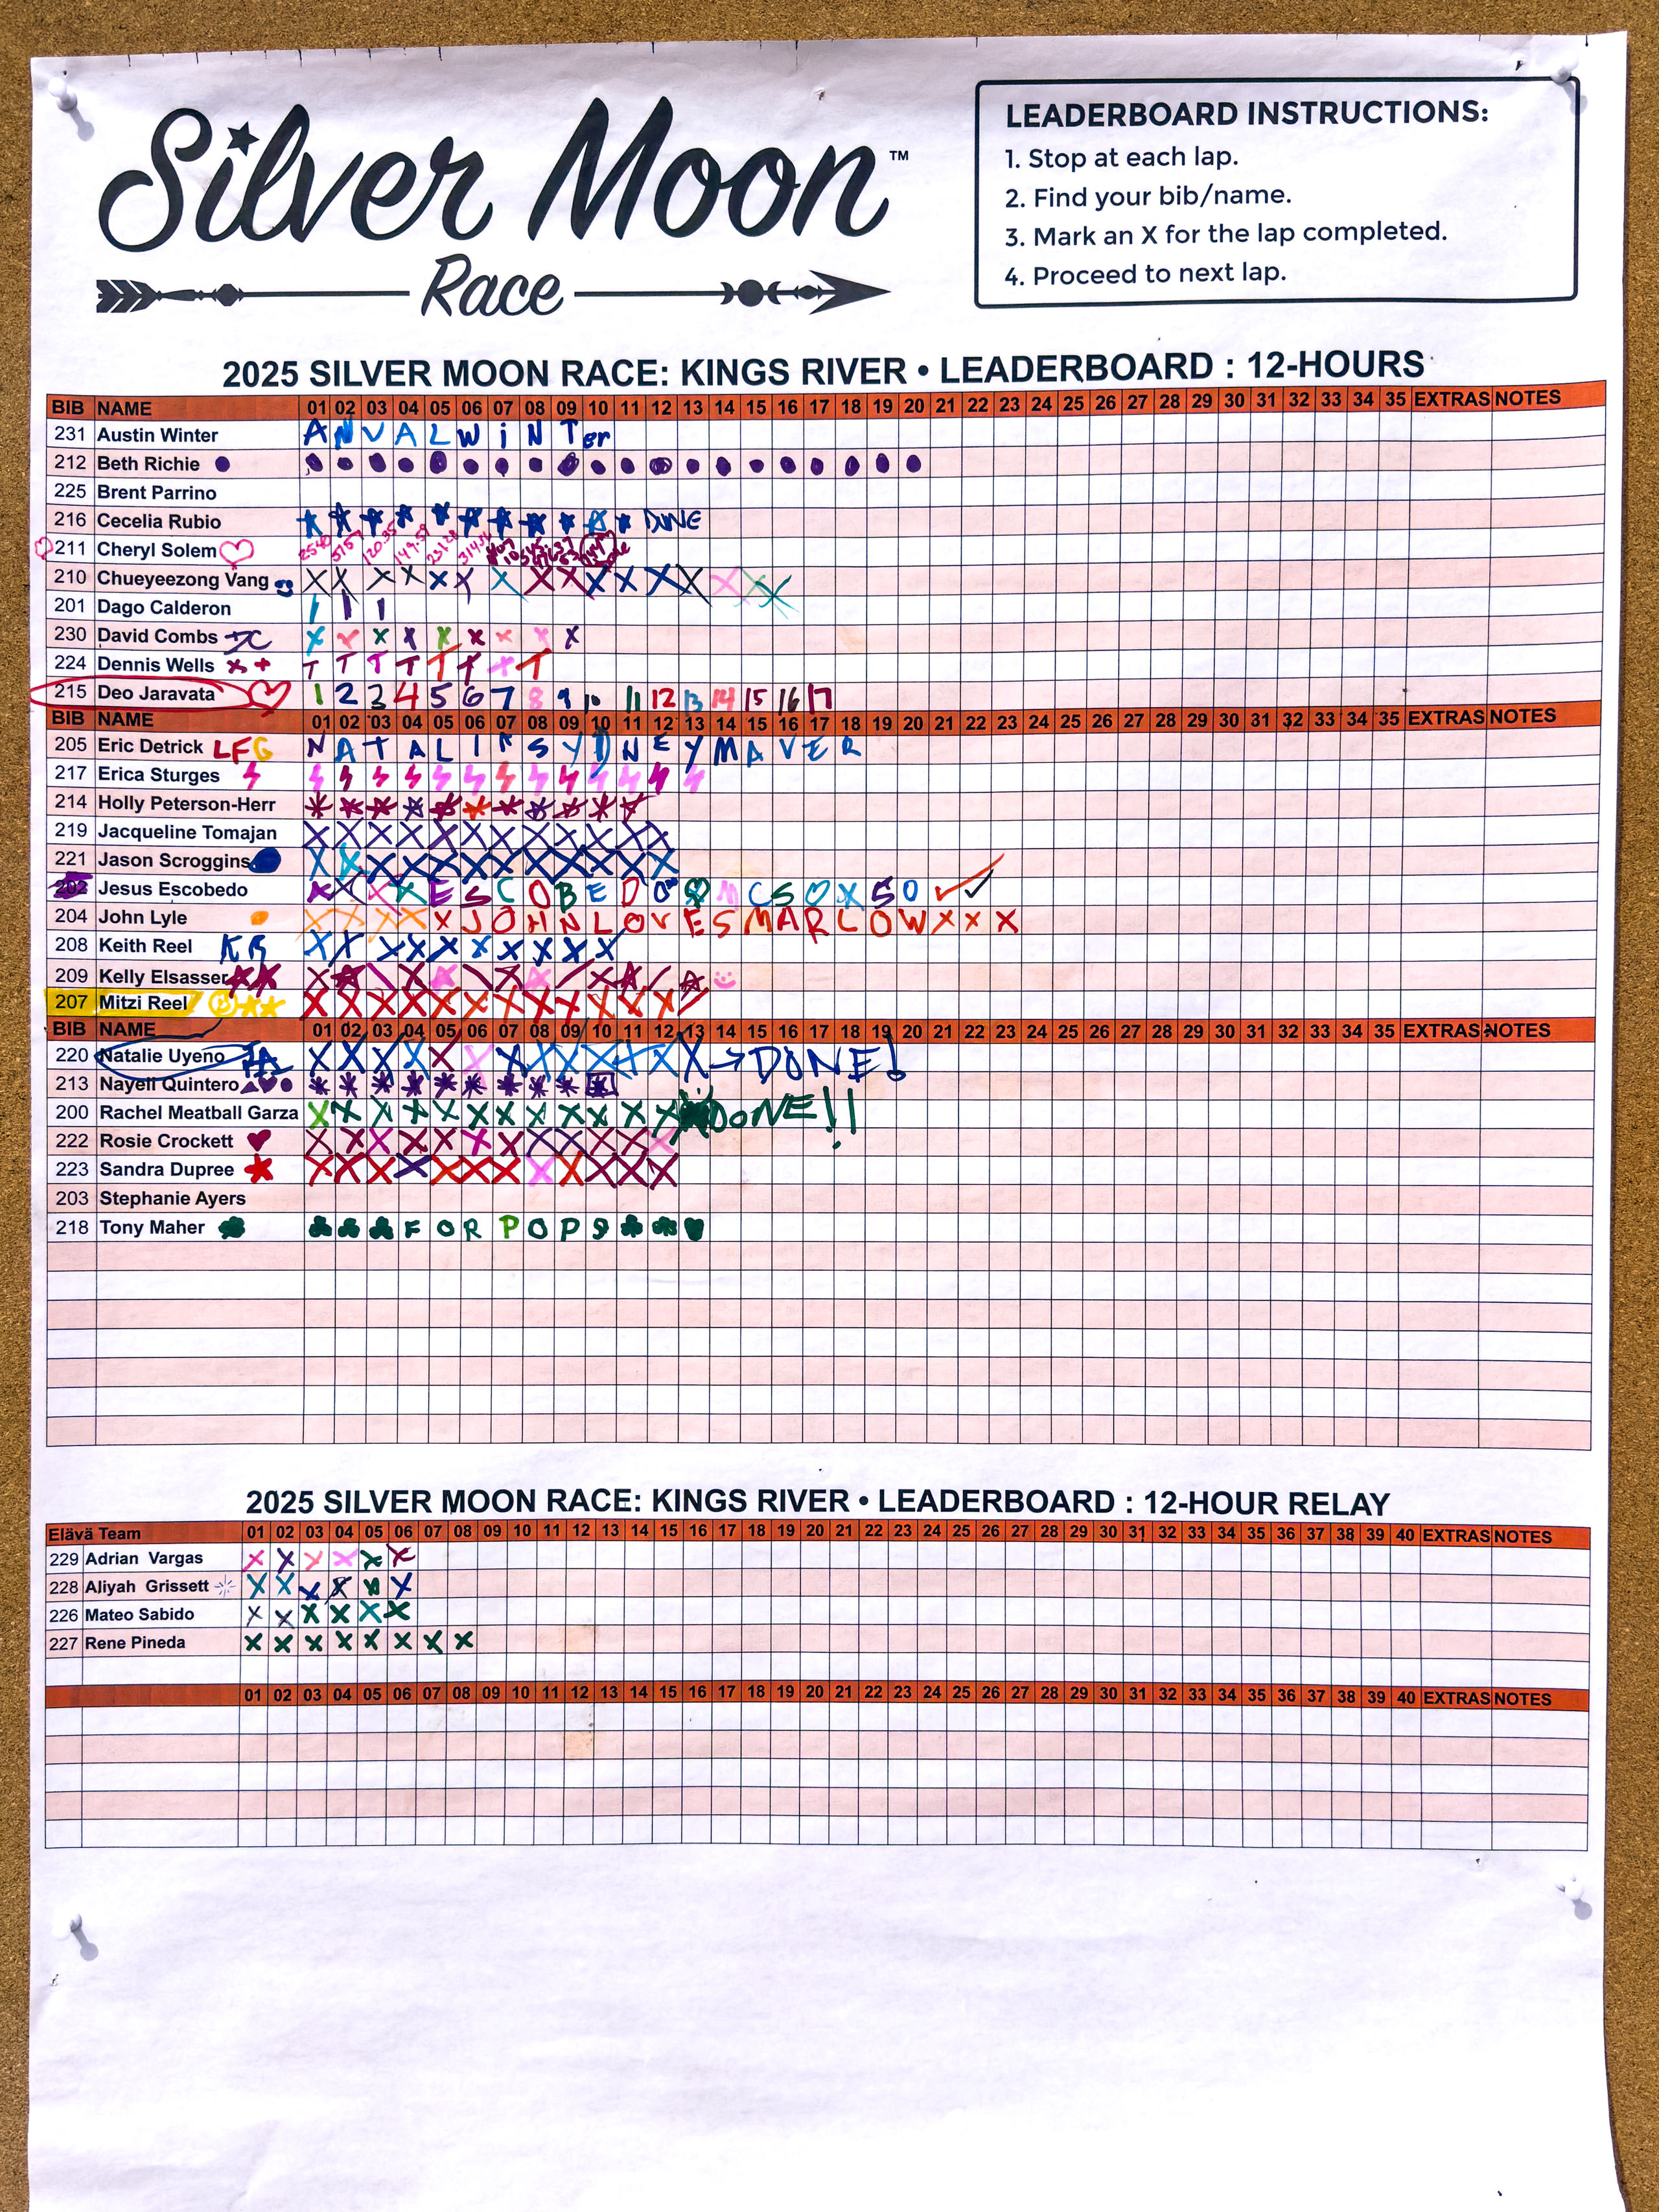 Silver Moon™
Race
LEADERBOARD INSTRUCTIONS:
1. Stop at each lap.
2. Find your bib/name.
3. Mark an X for the lap completed.
4. Proceed to next lap.
2025 SILVER MOON RACE: KINGS RIVER • LEADERBOARD : 12-HOURS
BIB NAME 01 02 03 04 05 06 07 08 09 10 11 12 13 14 15 16 17 18 19 20 21 22 23 24 25 26 27 28 29 30 31 32 33 34 35 EXTRAS NOTES
231 Austin Winter A N V A L W i N T er
212 Beth Richie
225 Brent Parrino
216 Cecelia Rubio DONE
211 Cheryl Solem
210 Chueyeezong Vang X X X X X X X X X X X X X X X X
201 Dago Calderon I I I
230 David Combs DC X X X X X X X X X
224 Dennis Wells X + T T T T T T X T
215 Deo Jaravata 1 2 3 4 5 6 7 8 9 10 11 12 13 14 15 16 17
BIB NAME 01 02 03 04 05 06 07 08 09 10 11 12 13 14 15 16 17 18 19 20 21 22 23 24 25 26 27 28 29 30 31 32 33 34 35 EXTRAS NOTES
205 Eric Detrick LFG N A T A L I K S Y D N E Y M A V E R
217 Erica Sturges
214 Holly Peterson-Herr
219 Jacqueline Tomajan X X X X X X X X X X X X
221 Jason Scroggins X X X X X X X X X X X X
202 Jesus Escobedo X X X X E S C O B E D O M C S O X S O ✓ ✓
204 John Lyle X X X X X J O H N L O V E S M A R L O W X X X
208 Keith Reel KR X X X X X X X X X X
209 Kelly Elsasser
207 Mitzi Reel X X X X X X X X X X X X X
BIB NAME 01 02 03 04 05 06 07 08 09 10 11 12 13 14 15 16 17 18 19 20 21 22 23 24 25 26 27 28 29 30 31 32 33 34 35 EXTRAS NOTES
220 Natalie Uyeno X X X X X X X X X X X X X → DONE!
213 Nayeli Quintero
200 Rachel Meatball Garza X X X X X X X X X X X X DONE!!
222 Rosie Crockett X X X X X X X X X X X X
223 Sandra Dupree X X X X X X X X X X X X
203 Stephanie Ayers
218 Tony Maher F O R P O P S
2025 SILVER MOON RACE: KINGS RIVER • LEADERBOARD : 12-HOUR RELAY
Elävä Team 01 02 03 04 05 06 07 08 09 10 11 12 13 14 15 16 17 18 19 20 21 22 23 24 25 26 27 28 29 30 31 32 33 34 35 36 37 38 39 40 EXTRAS NOTES
229 Adrian Vargas X X X X X X
228 Aliyah Grissett X X X X X X
226 Mateo Sabido X X X X X X
227 Rene Pineda X X X X X X X X
01 02 03 04 05 06 07 08 09 10 11 12 13 14 15 16 17 18 19 20 21 22 23 24 25 26 27 28 29 30 31 32 33 34 35 36 37 38 39 40 EXTRAS NOTES